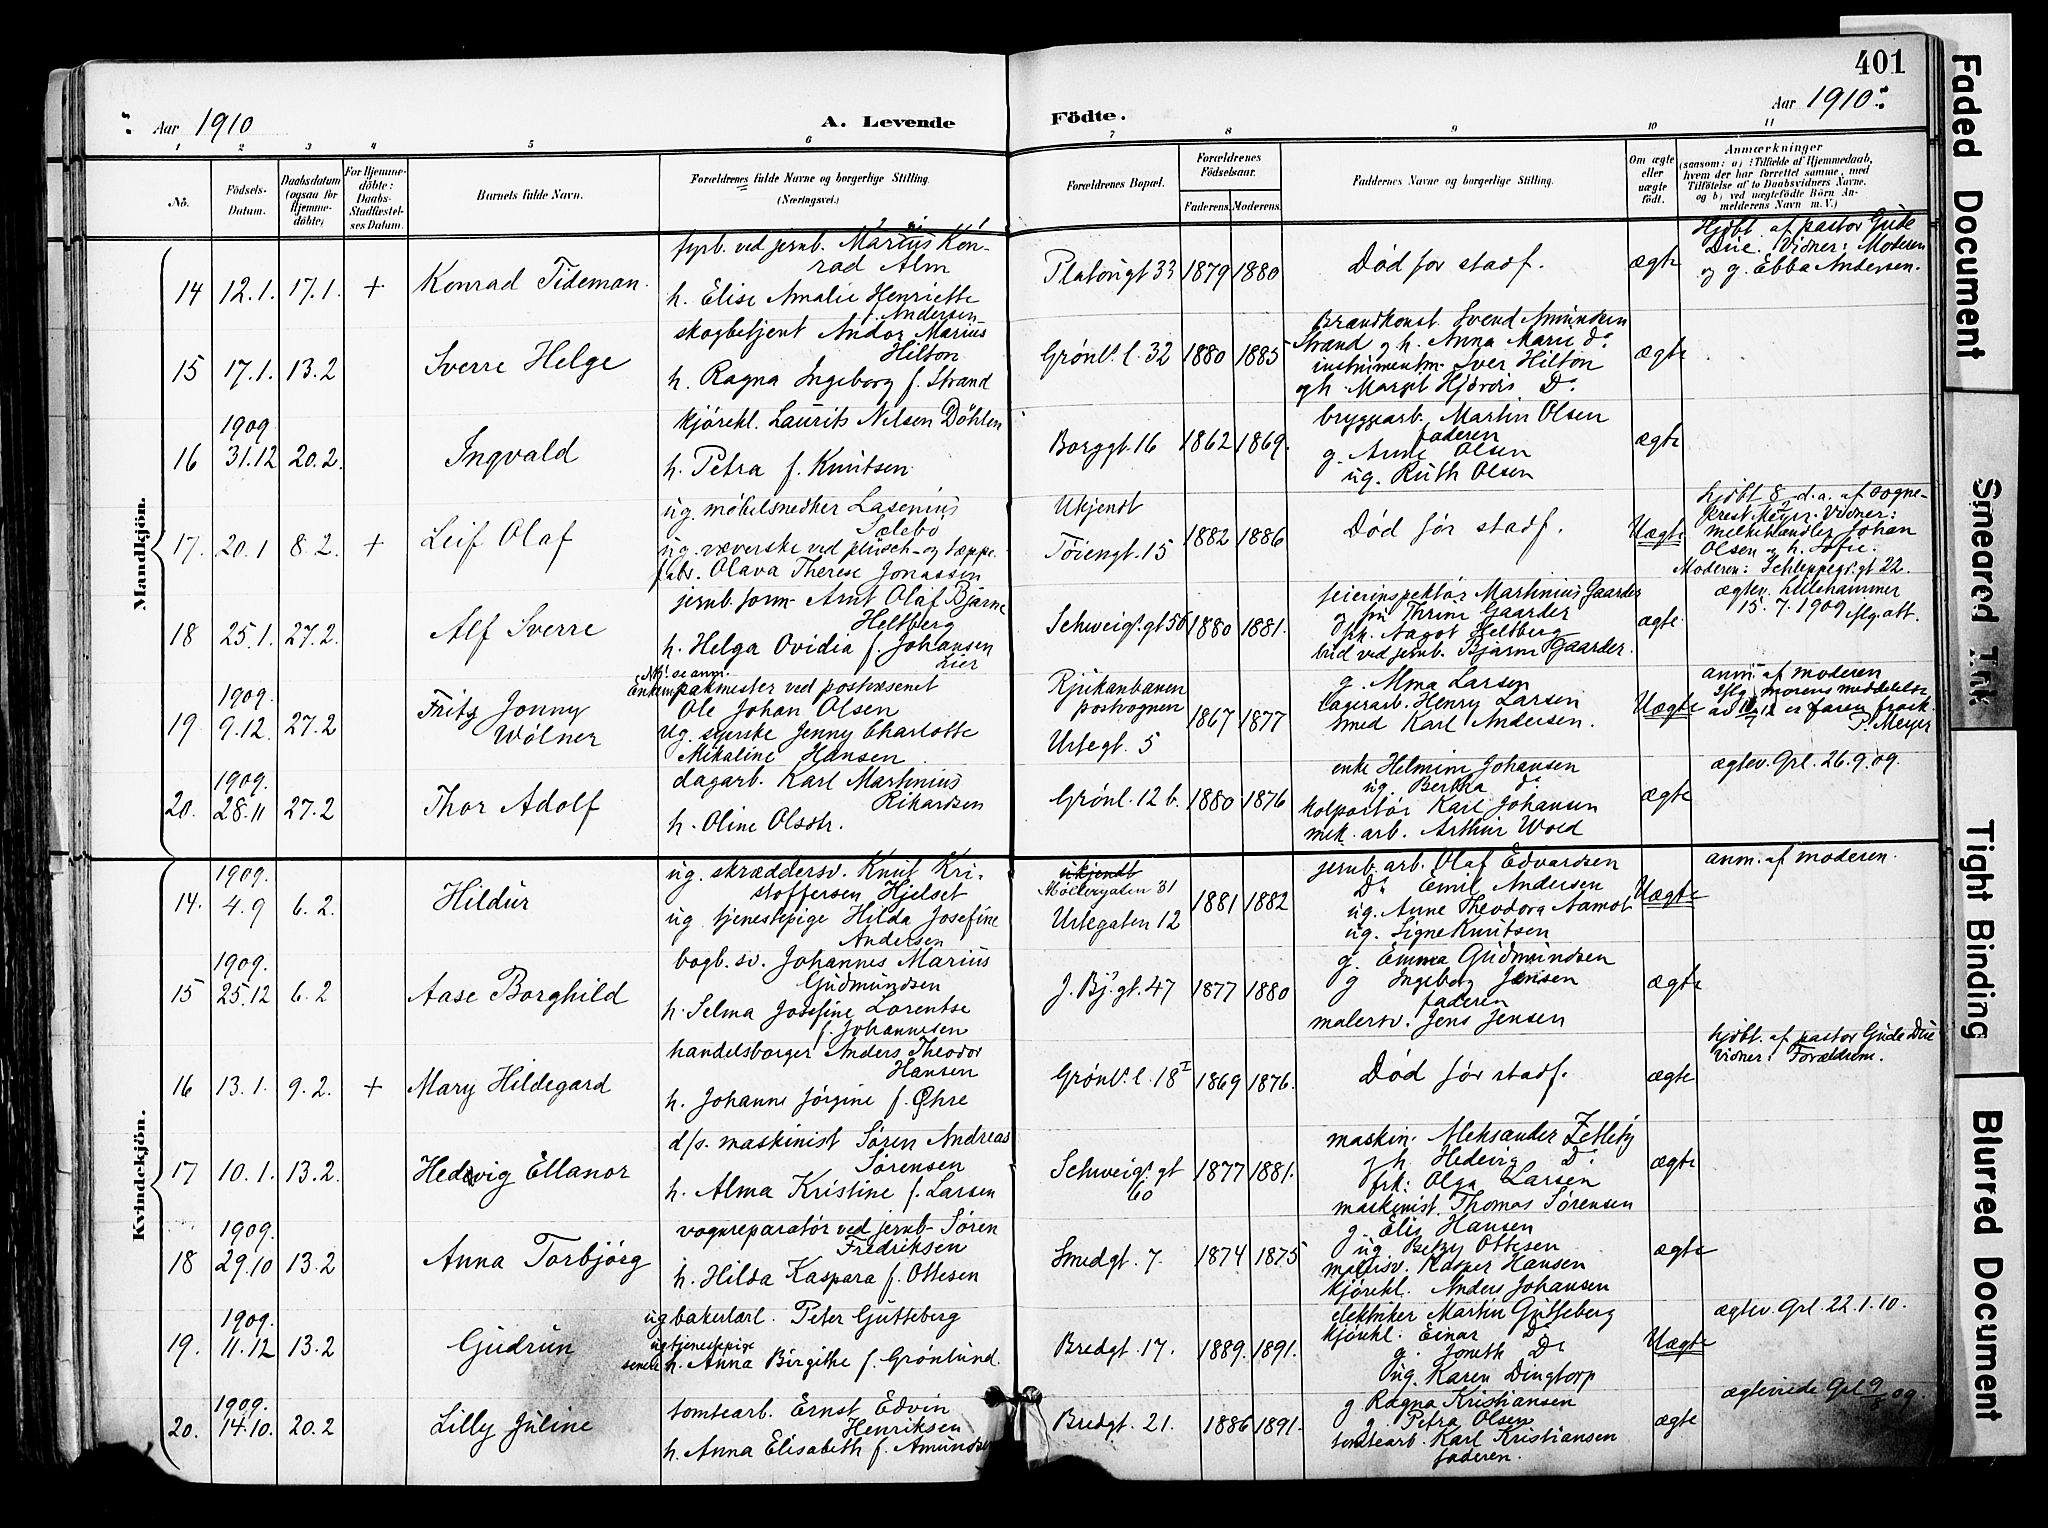 401
Aar 1910
A. Levende
Födte.
Aar 1910
1 2 3 4 5 6 7 8 9 10 11
No.
Födsels-Datum.
Daabsdatum (ogsaa for Hjemme-döbte)
For Hjemme-döbte: Daabs-Stadfæstel-ses Datum.
Barnets fulde Navn.
Forældrenes fulde Navne og borgerlige Stilling.
(Næringsvei.)
Forældrenes Bopæl.
Forældrenes Födselsaar.
Faderens. Moderens.
Faddernes Navne og borgerlige Stilling.
Om ægte eller uægte födt.
Anmærkninger
(saasom: a) i Tilfælde af Hjemmedaab,
hvem der har forrettet samme, med
Tilföielse af to Daabsvidners Navne.
og b) ved uægtefödte Börn An-
melderens Navn m. V.)
Mandkjön.
14 12.1. 17.1. + Konrad Tideman.
fyrb. ved jernb. Marius Kon-
rad Alm
h. Elise Amalie Henriette
f. Andersen
Platousgt 33 1879 1880
Död for stadf.
ægte
Hjdbt. af pastor Gude
Due. Vidner: Moderen
og g. Ebba Andersen.
15 17.1. 13.2 Sverre Helge
skogbetjent Andor Marius
Hilton
h. Ragna Ingeborg f. Strand
Grönl. l. 32 1880 1885
Brandkonst. Svend Amundsen
Strand og h. Anna Marie Do
instrumentm. Iver Hilton
og h. Margit Hjördis Do
ægte
1909.
16 31.12 20.2. Ingvald
kjörekl. Laurits Nilsen Döhlen
h. Petra f. Knutsen
Borggt. 16 1862 1869.
bryggarb. Martin Olsen
faderen
g. Anne Olsen
ug. Ruth Olsen
ægte
17. 20.1 8.2. + Leif Olaf
ug. möbelsnedker Lasenius
Sælebö
ug. væverske ved plüsch- og tæppe-
fabr. Olava Therese Jonassen
Ukjendt
Töiengt. 15 1882 1886
Död för stadf.
Uægte
hjdbt 8 d.a. af sogne-
prest Meyer. Vidner:
melkehandler Johan
Olsen og h. Sofie.
Moderen: Schleppegr.gt 22.
18 25.1. 27.2. Alf Sverre
jernb. form. Arnt Olaf Bjarne
Heltberg
h. Helga Ovidia f. Johansen
Lier
Schweigs.gt 56 1880 1881.
feierinspektör Martinius Gaarder
og fru Thrine Gaarder
frk. Aagot Heltberg
bud ved jernb. Bjarne Gaarder.
ægte.
ægtev. Lillehammer
15.7.1909 iflg. att.
1909.
19 9.12. 27.2 Fritz Jonny
Wölner
NB. se anm.
Enkem. pakmester ved postvæsenet
Ole Johan Olsen
Ug. syerske Jenny Charlotte
Mikaline Hansen
Rjukanbanen
postvognen
Urtegt. 5 1867 1877
g. Alma Larsen
lagerarb. Henry Larsen
smed Karl Andersen.
Uægte
anm. af moderen
iflg. morens meddelelse
er faren frask.
P. Meyer
1909.
20. 28.11 27.2 Thor Adolf
dagarb. Karl Martinius
Rikardsen
h. Oline Olsdtr.
Grönl. 12 b. 1880 1876
enke Helmine Johansen
ug. Bertha Do
kolportör Karl Johansen
mek. arb. Arthur Wold
ægte
ægtev. Grl. 26.9.09.
Kvindekjön.
1909.
14. 4.9 6.2. Hildur
ug. skræddersv. Knut Kri-
stoffersen Hjelset
ug. tjenestepige Hilda Josefine
Andersen
ukjendt
Möllergaten 31
Urtegaten 12 1881 1882
jernb. arb. Olaf Edvardsen
Do Emil Andersen
ug. Anne Theodora Aamot
ug. Signe Knutsen
Uægte
anm. af moderen.
1909.
15 25.12 6.2 Aase Borghild
bogb. sv. Johannes Marius
Gudmundsen
h. Selma Josefine Lorentse
f. Johannesen
J. Bj. gt. 47 1877 1880
g. Emma Gudmundsen
g Ingeborg Jensen
faderen
malersv. Jens Jensen
ægte
16 13.1. 9.2. + Mary Hildegard
handelsborger Anders Theodor
Hansen
h. Johanne Jörgine f. Öhre
Grönl. l. 18 I 1869 1876.
Död för stadf.
ægte
hjdbt. af pastor Gude Due
vidner: Forældrene.
17 10.1. 13.2. Hedevig Ellanor
d/s. maskinist Sören Andreas
Sörensen
h. Alma Kristine f. Larsen
Schweigs. gt
60 1877 1881.
maskin. Aleksander Zetlitz
og h. Hedevig Do
frk: Olga Larsen
maskinist. Thomas Sörensen
ægte
1909.
18 29.10 13.2 Anna Torbjörg
vognreparatör ved jernb. Sören
Fredriksen
h. Hilda Kaspara f. Ottesen
Smedgt. 7. 1874 1875
g. Elis Hansen
ug. Betzy Ottesen
malersv. Kasper Hansen
kjörekl. Anders Johansen
ægte
1909.
19. 11.12 13.2 Gudrun
ug bakerlærl. Peter Gutteberg
ug tjenestepige
senere h. Anna Birgithe f. Grönlund.
Bredgt. 17. 1889. 1891.
elektriker Martin Gutteberg
kjörekl. Einar Do
g. Do
ug. Karen Dingtorp
Uægte
ægtev. Grl. 22.1.10.
1909.
20. 14.10. 20.2 Lilly Juline
tomtearb. Ernst Edvin
Henriksen
h. Anna Elisabeth f. Amundsen
Bredgt. 21. 1886 1891.
g Ragna Kristiansen
g. Petra Olsen
tomtearb. Karl Kristiansen
faderen.
ægte
ægteviede Grl 9/09.
Faded Document
Smeared Ink
Tight Binding
Blurred Document